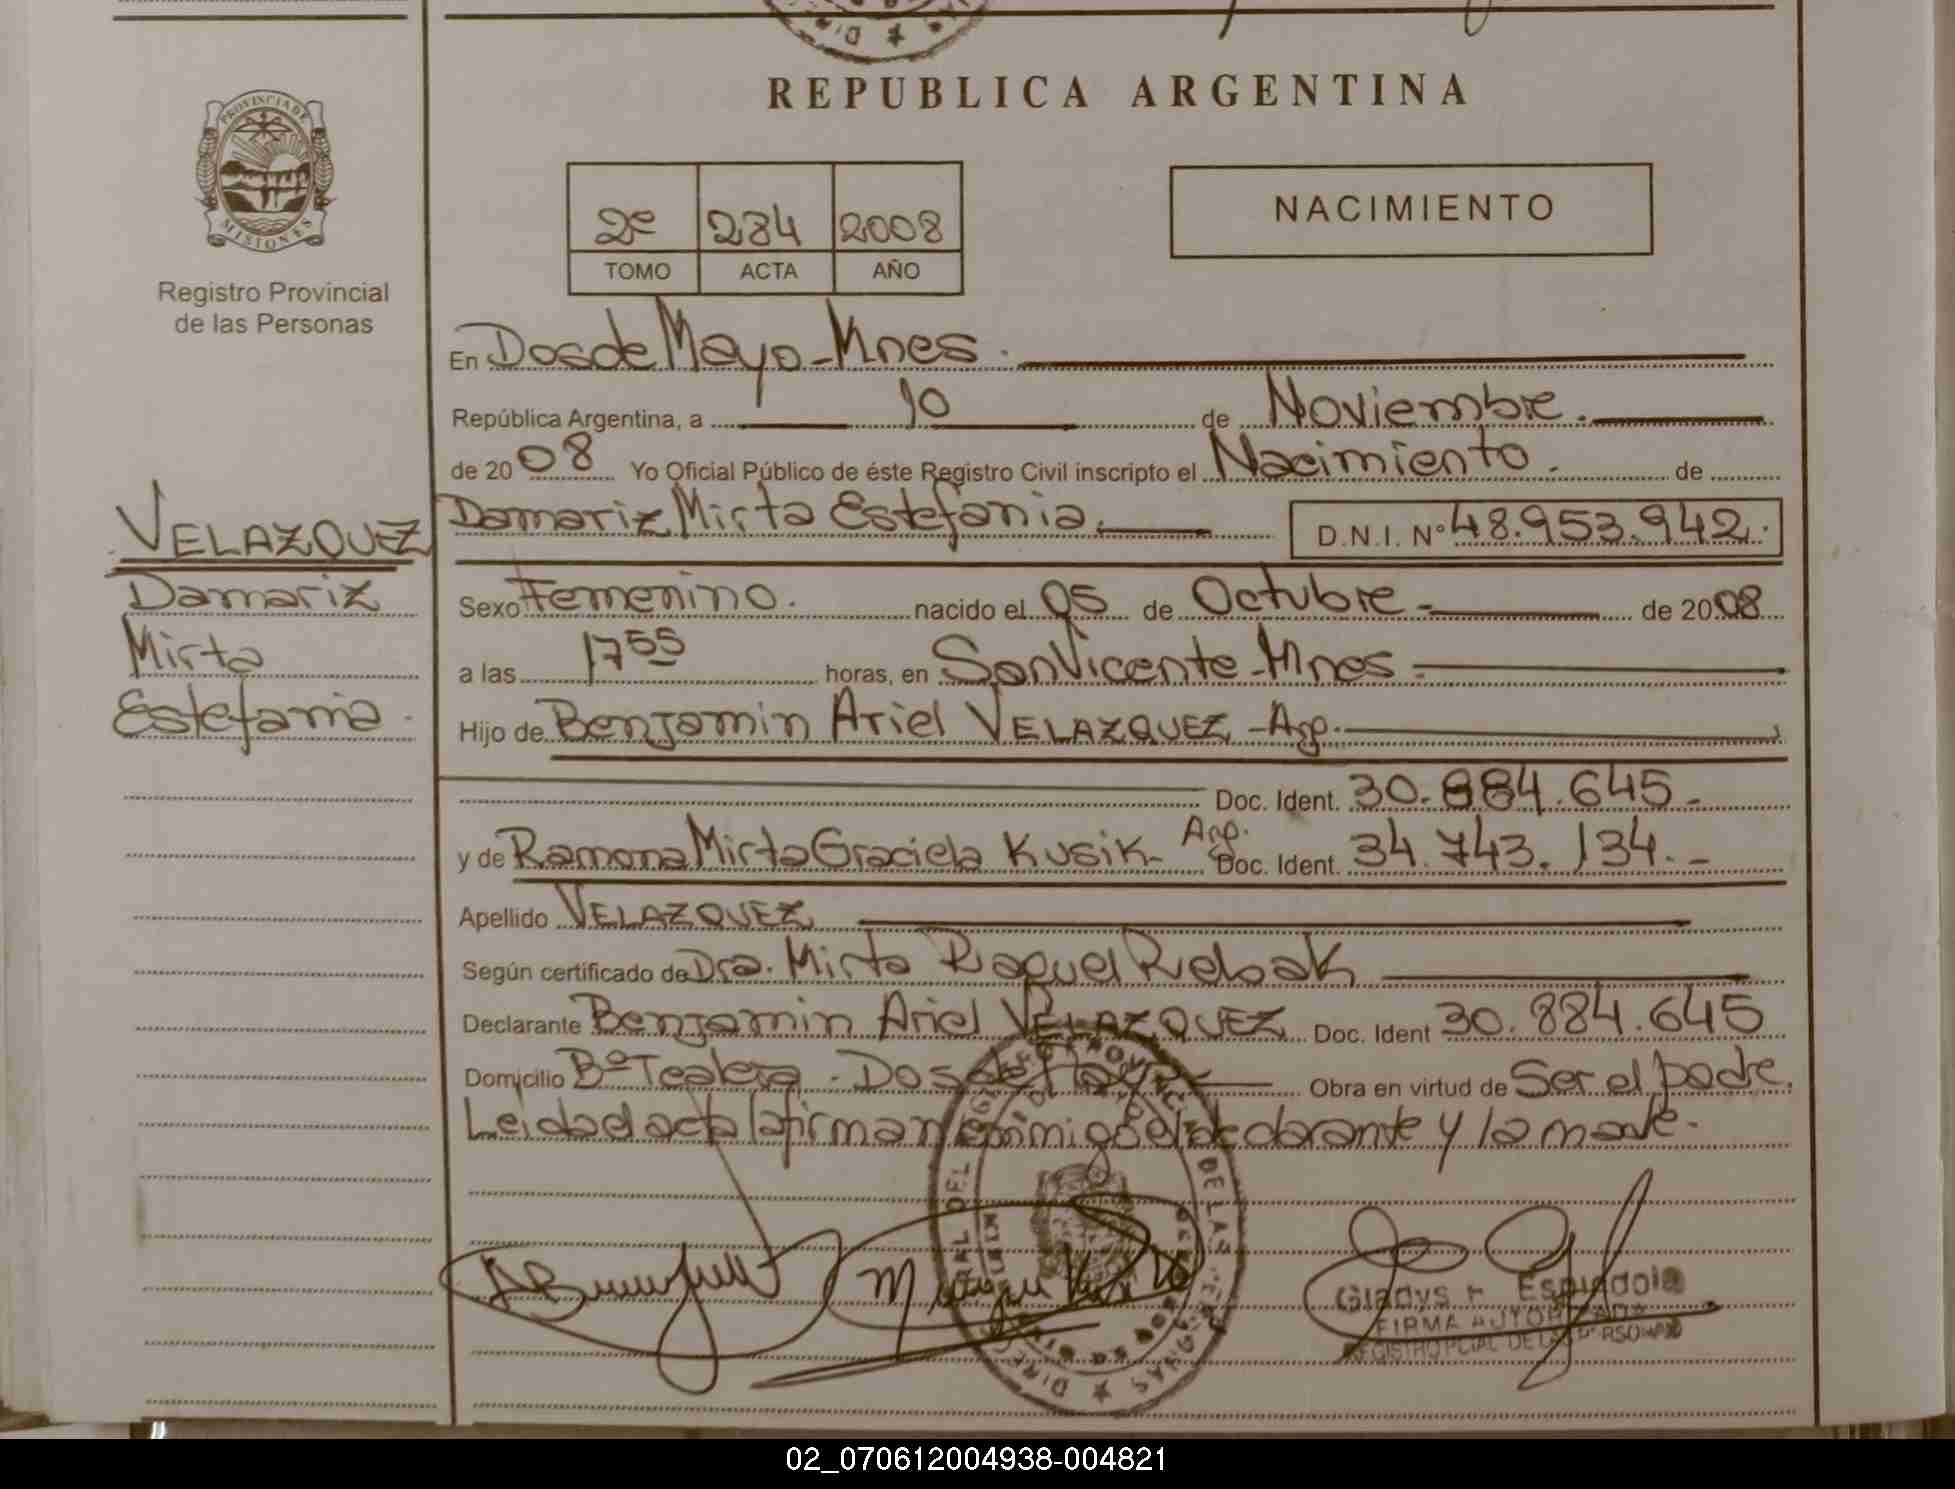 REPUBLICA ARGENTINA
PROVINCIA DE
MISIONES
Registro Provincial
de las Personas
2º 284 2008
TOMO ACTA AÑO
NACIMIENTO
En Dos de Mayo - Mnes.
República Argentina, a 10 de Noviembre.
de 2008 Yo Oficial Público de éste Registro Civil inscripto el Nacimiento. de
Damariz Mirta Estefania. D.N.I. Nº 48.953.942.
VELAZQUEZ
Damariz
Mirta
Estefania.
Sexo Femenino. nacido el 05 de Octubre - de 2008
a las 17 55 horas, en San Vicente - Mnes
Hijo de Benjamin Ariel VELAZQUEZ - Arg.
Doc. Ident. 30.884.645.
y de Ramona Mirta Graciela Kusik - Arg. Doc. Ident. 34.743.134. -
Apellido VELAZQUEZ
Según certificado de Dra. Mirta Raquel Rebak
Declarante Benjamin Ariel VELAZQUEZ Doc. Ident 30.884.645
Domicilio Bº - Dos de Mayo - Obra en virtud de Ser el padre.
Leida el acta la firman conmigo el declarante y la madre.
Gladys F. Espindola
FIRMA AUTORIZADA
REGISTRO PCIAL DE LAS PERSONAS
02_070612004938-004821